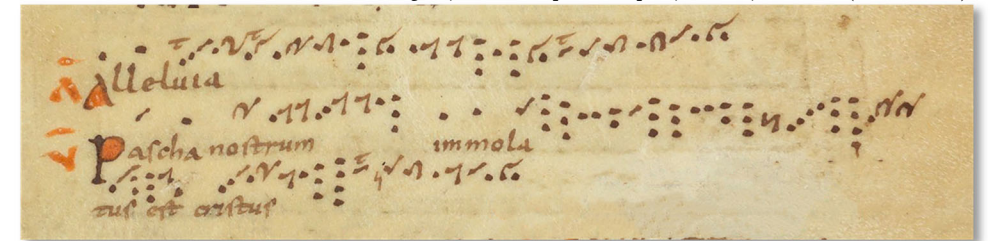 Alleluia
Pascha nostrum immola
tus est cristus